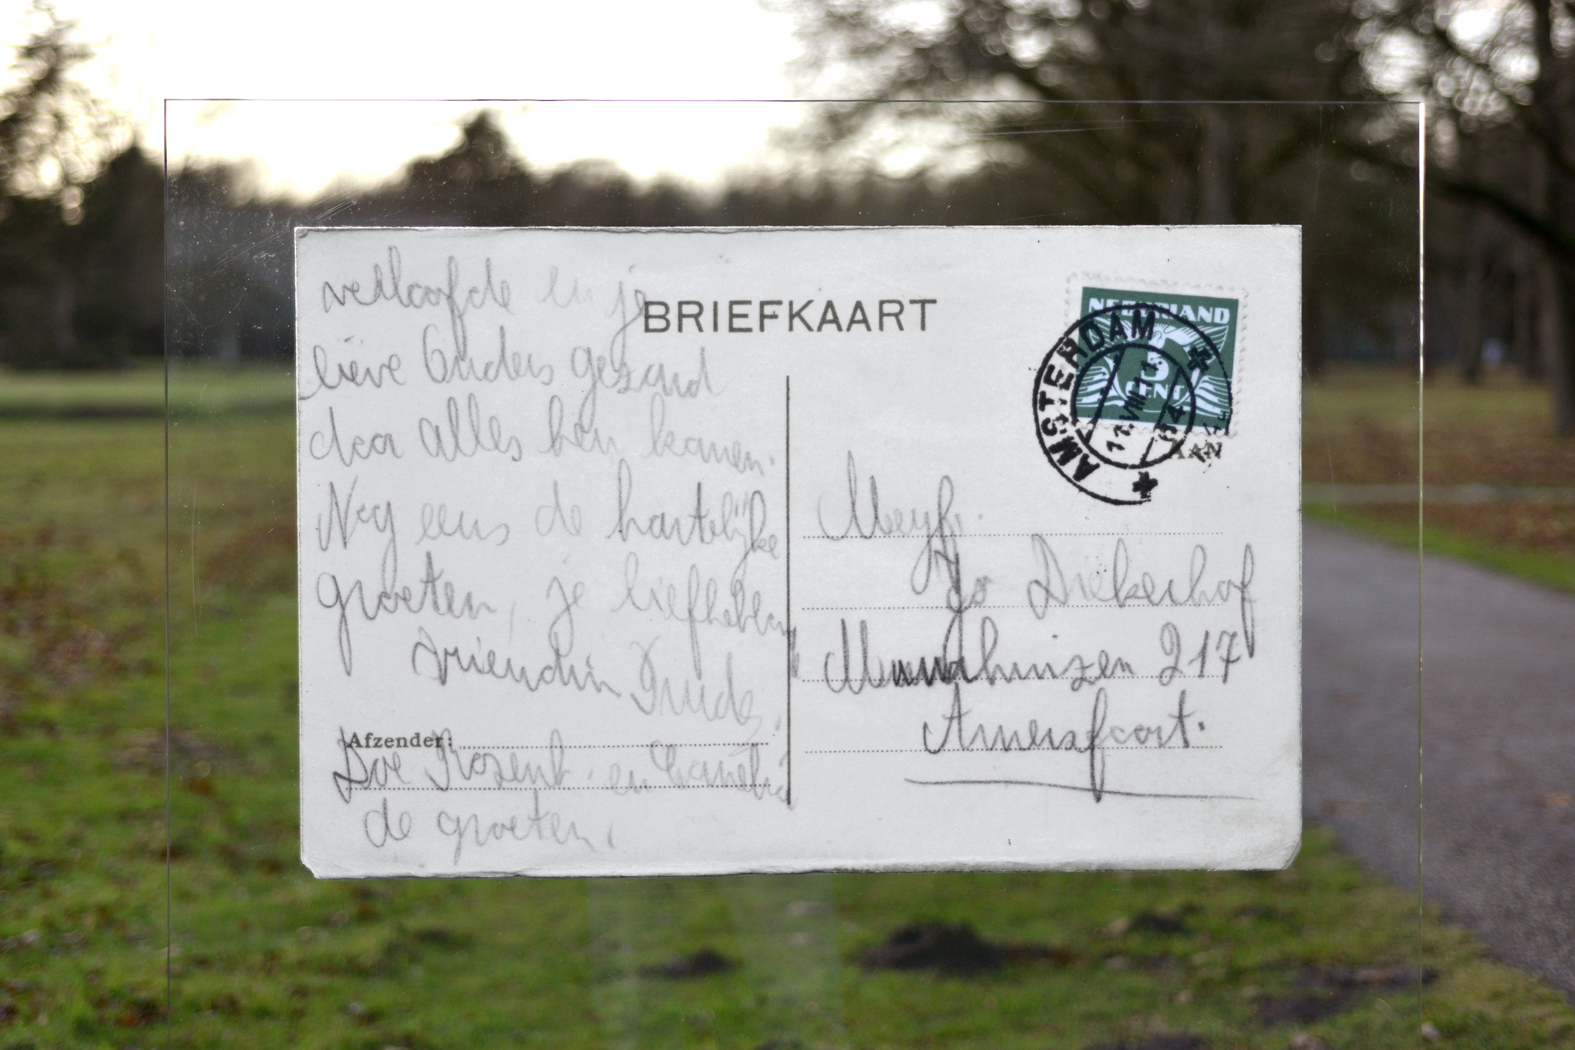 verloofde en je
lieve Ouders gezond
door alles hen komen.
Nog eens de hartelijke
groeten, je liefhebben
vriendin Trude.
Afzender:
Doe Rozenk. en
de groeten.
BRIEFKAART
NEDERLAND
5
CENT
AMSTERDAM
11.VIII.1
AAN
Mejfr.
Jo Diekerhof
217
Amersfoort.